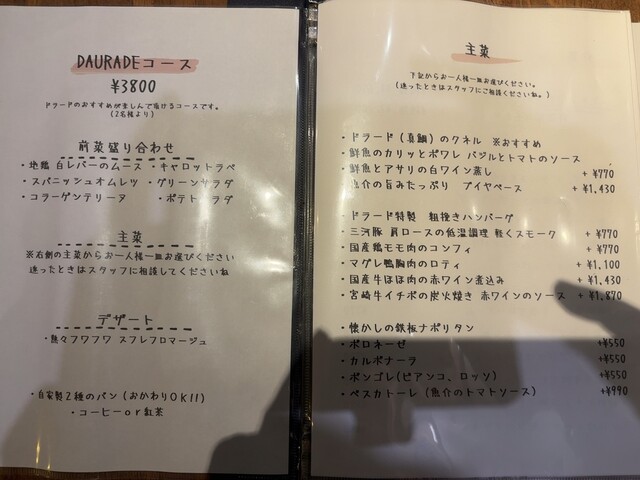 DAURADEコース
¥3800
ドラードのおすすめが楽しんで頂けるコースです。
(2名様より)
前菜盛り合わせ
・地鶏 白レバーのムース ・キャロットラペ
・スパニッシュオムレツ ・グリーンサラダ
・コラーゲンテリーヌ ・ポテトサラダ
主菜
※右側の主菜からお一人様一皿お選びください
迷ったときはスタッフに相談してくださいね
デザート
・熱々フワフワ スフレフロマージュ
・自家製2種のパン(おかわりOK!!)
・コーヒーor紅茶
主菜
下記からお一人様一皿お選びください。
(迷ったときはスタッフにご相談くださいね。)
・ドラード(真鯛)のクネル ※おすすめ
・鮮魚のカリッとポワレ バジルとトマトのソース
・鮮魚とアサリの白ワイン蒸し +¥770
・魚介の旨みたっぷり ブイヤベース +¥1,430
・ドラード特製 粗挽きハンバーグ
・三河豚 肩ロースの低温調理 軽くスモーク +¥770
・国産鶏モモ肉のコンフィ +¥770
・マグレ鴨胸肉のロティ +¥1,100
・国産牛ほほ肉の赤ワイン煮込み +¥1,430
・宮崎牛イチボの炭火焼き 赤ワインのソース +¥1,870
・懐かしの鉄板ナポリタン
・ボロネーゼ +¥550
・カルボナーラ +¥550
・ボンゴレ(ビアンコ、ロッソ) +¥550
・ペスカトーレ(魚介のトマトソース) +¥990